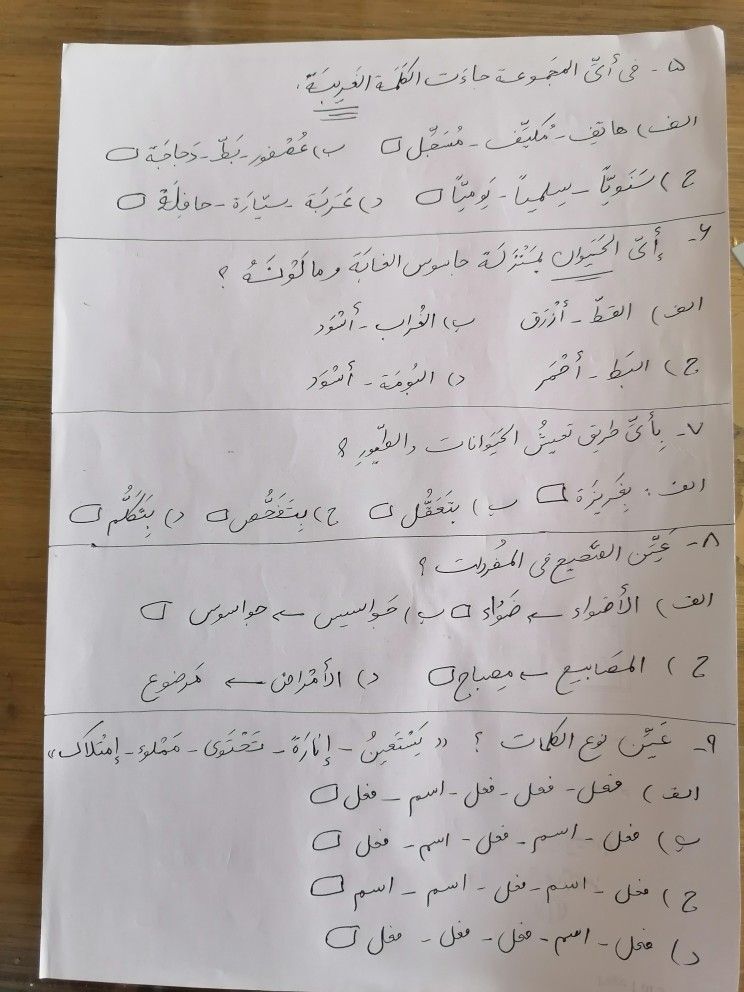 ۵- فی أَیِّ المجموعة جاءَت الکَلِمَة الغَریبَةُ؟
الف) هاتِف - مُکَیِّف - مُسَجِّل ب) عُصْفور - بَطّ - دَجاجَة
ج) سَنَویّاً - سِلمیاً - یَومِیّاً د) عَرَبَة - سیّارَة - حافِلَة
۶- أیّ الحَیَوان بِمَنْزِلَة جاسوس الغابَة و ما لَوْنُهُ ؟
الف) القطّ - أزْرَق ب) الغُراب - أسْوَد
ج) البَط - أحْمَر د) البُومَة - أسْوَد
۷- بِأَیِّ طریق تعیشُ الحَیَوانات والطّیُورِ ؟
الف: بِغَریزَة ب) بِتَعَقُّل ج) بِتَفَحُّص د) بِتَکَلُّم
۸- عَیِّن الصَّحیح فی المُفردات ؟
الف) الأضواء ← ضَوْاء ب) جَواسیس ← جواسوس
ج) المَصَابیح ← مِصباح د) الأَمْراض ← مَرضوع
۹- عَیِّن نوع الکلمات ؟ «یَسْتَعینُ - إنارَةً - تَحْتَوی - مَمْلوء - إمْتلاک»
الف) فعل - فعل - فعل - اسم - فعل
ب) فعل - اسم - فعل - اسم - فعل
ج) فعل - اسم - فعل - اسم - اسم
د) فعل - اسم - فعل - فعل - فعل